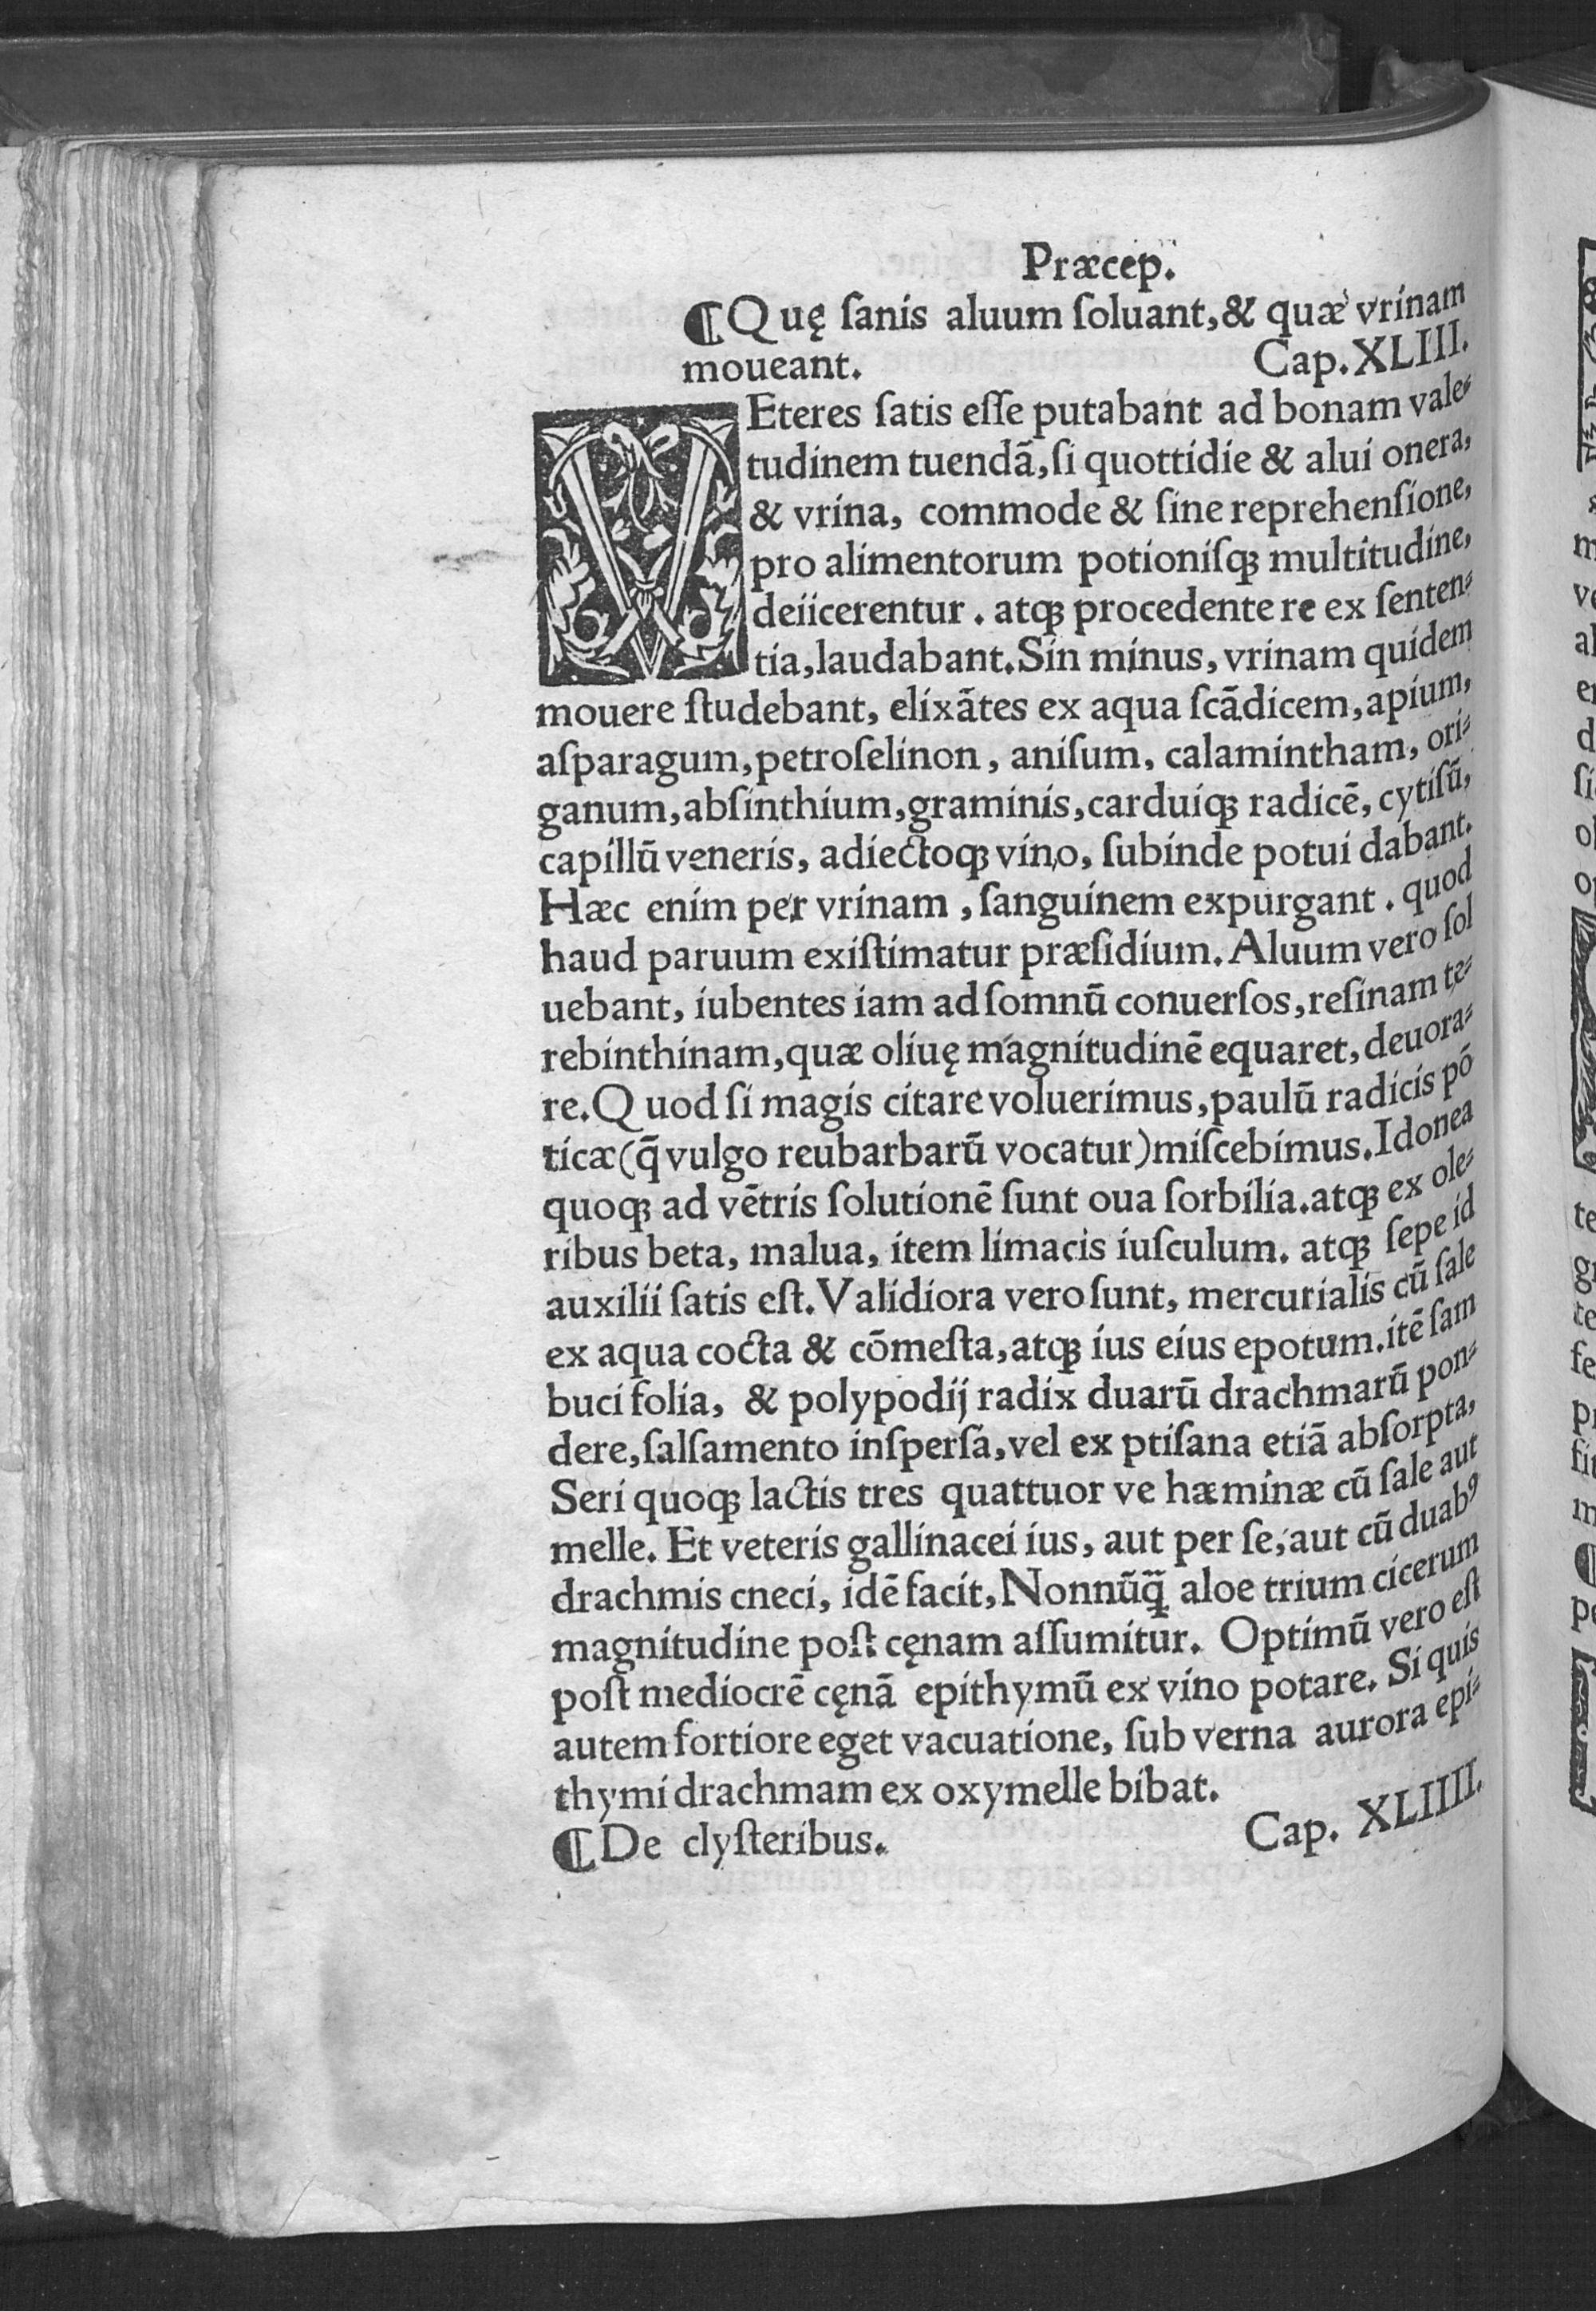 Præcep.
¶ Quę ſanis aluum ſoluant, & quæ vrinam
moueant. Cap. XLIII.
VEteres ſatis eſſe putabant ad bonam vale⸗
tudinem tuendã, ſi quottidie & alui onera,
& vrina, commode & ſine reprehenſione,
pro alimentorum potioniſqꝫ multitudine,
deiicerentur. atqꝫ procedente re ex ſenten⸗
tia, laudabant. Sin minus, vrinam quidem
mouere ſtudebant, elixãtes ex aqua ſcãdicem, apium,
aſparagum, petroſelinon, aniſum, calamintham, ori⸗
ganum, abſinthium, graminis, carduiqꝫ radicẽ, cytiſũ,
capillũ veneris, adiectoqꝫ vino, ſubinde potui dabant.
Hæc enim per vrinam, ſanguinem expurgant. quod
haud paruum exiſtimatur præſidium. Aluum vero ſol
uebant, iubentes iam ad ſomnũ conuerſos, reſinam te⸗
rebinthinam, quæ oliuę magnitudinẽ equaret, deuora⸗
re. Quod ſi magis citare voluerimus, paulũ radicis põ
ticæ (q̃ vulgo reubarbarũ vocatur) miſcebimus. Idonea
quoqꝫ ad vẽtris ſolutionẽ ſunt oua ſorbilia. atqꝫ ex ole⸗
ribus beta, malua, item limacis iuſculum. atqꝫ ſepe id
auxilii ſatis eſt. Validiora vero ſunt, mercurialis cũ ſale
ex aqua cocta & cõmeſta, atqꝫ ius eius epotum. itẽ ſam
buci folia, & polypodij radix duarũ drachmarũ pon⸗
dere, ſalſamento inſperſa, vel ex ptiſana etiã abſorpta,
Seri quoqꝫ lactis tres quattuor ve hæminæ cũ ſale aut
melle. Et veteris gallinacei ius, aut per ſe, aut cũ duabꝰ
drachmis cneci, idẽ facit, Nonnũq̃ aloe trium cicerum
magnitudine poſt cęnam aſſumitur. Optimũ vero eſt
poſt mediocrẽ cęnã epithymũ ex vino potare. Si quis
autem fortiore eget vacuatione, ſub verna aurora epi⸗
thymi drachmam ex oxymelle bibat.
¶ De clyſteribus. Cap. XLIIII.